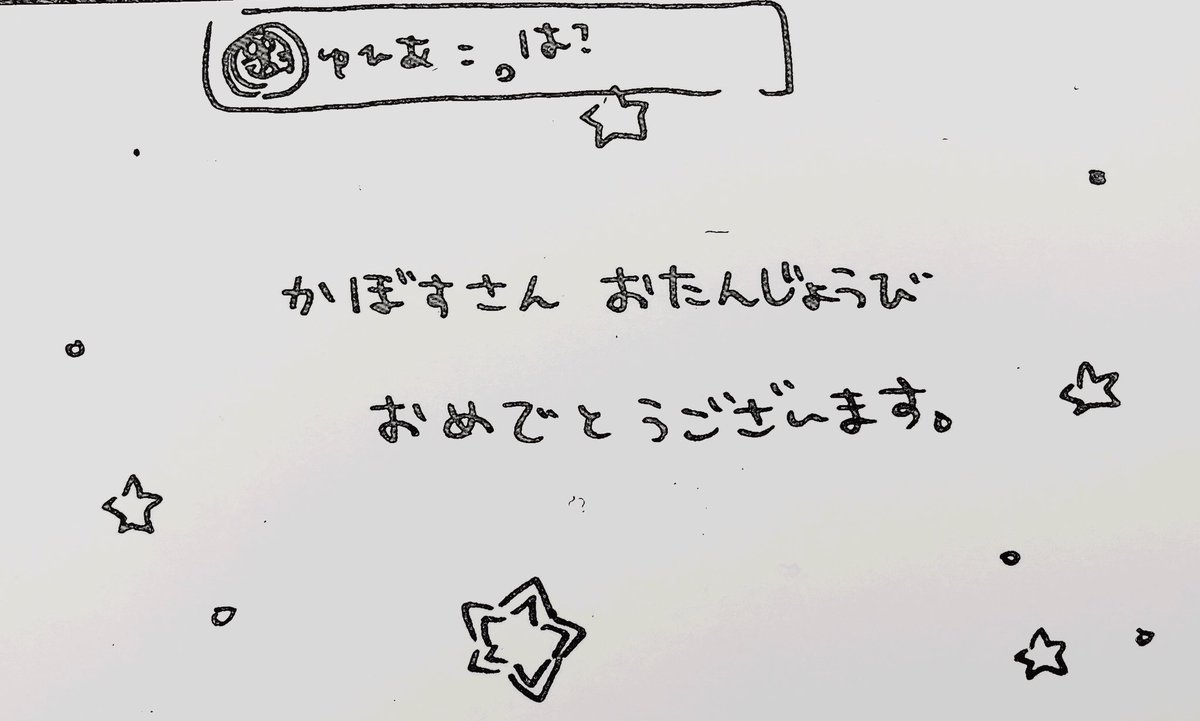 ゆんあ:。は?
かぼすさん おたんじょうび
おめでとうございます。